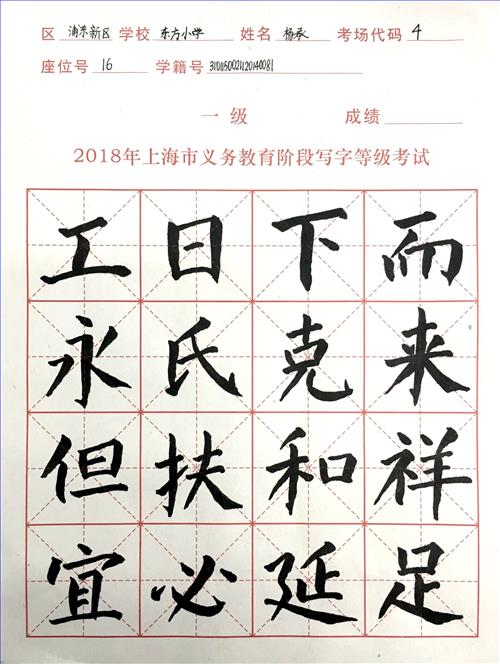 区 浦东新区 学校 东方小学 姓名 杨承 考场代码 4
座位号 16 学籍号 3101150021120140081
一级 成绩
2018年上海市义务教育阶段写字等级考试
工日下而
永氏克来
但扶和祥
宜必延足